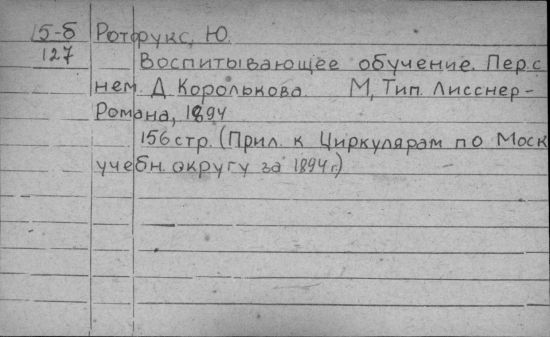 15-б Ротфукс, Ю.
127 Воспитывающее обучение. Пер. с
нем. Д. Королькова М, Тип. Лисснер-
Романа, 1894
156 стр. (Прил. к Циркулярам по Моск
учебн. округу за 1894 г.)